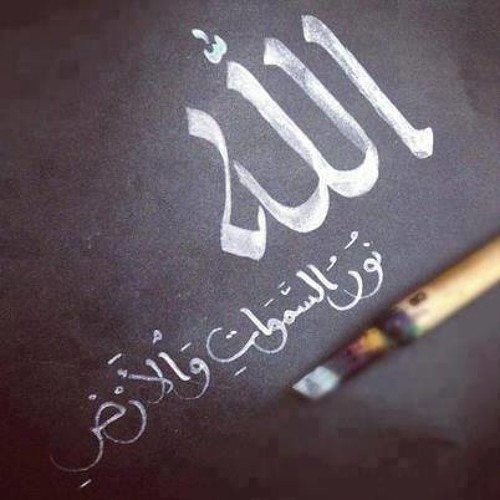 اللّٰه
نُورُ السَّمَوَاتِ وَالْأَرْضِ